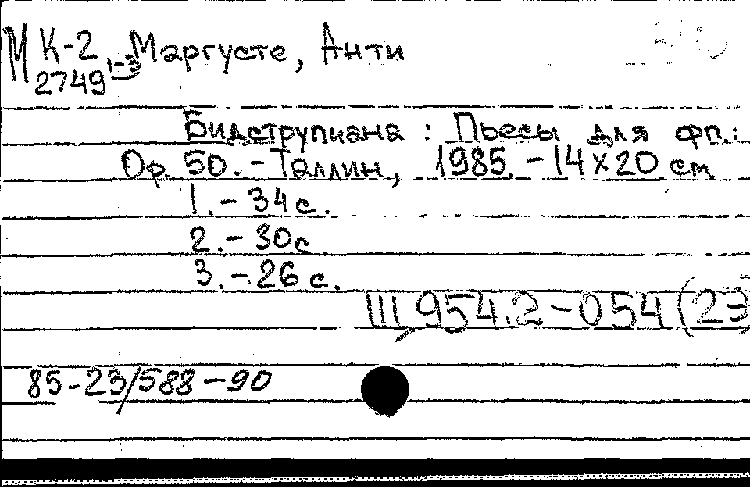 М К-2 Маргусте, Анти
2749 1-3
Бидструпиана : Пьесы для фп.:
Ор. 50. - Таллин, 1985. - 14 x 20 см
1. - 34 с.
2. - 30 с
3. - 26 с.
Ш 954.2-054(23
85-23/588-90